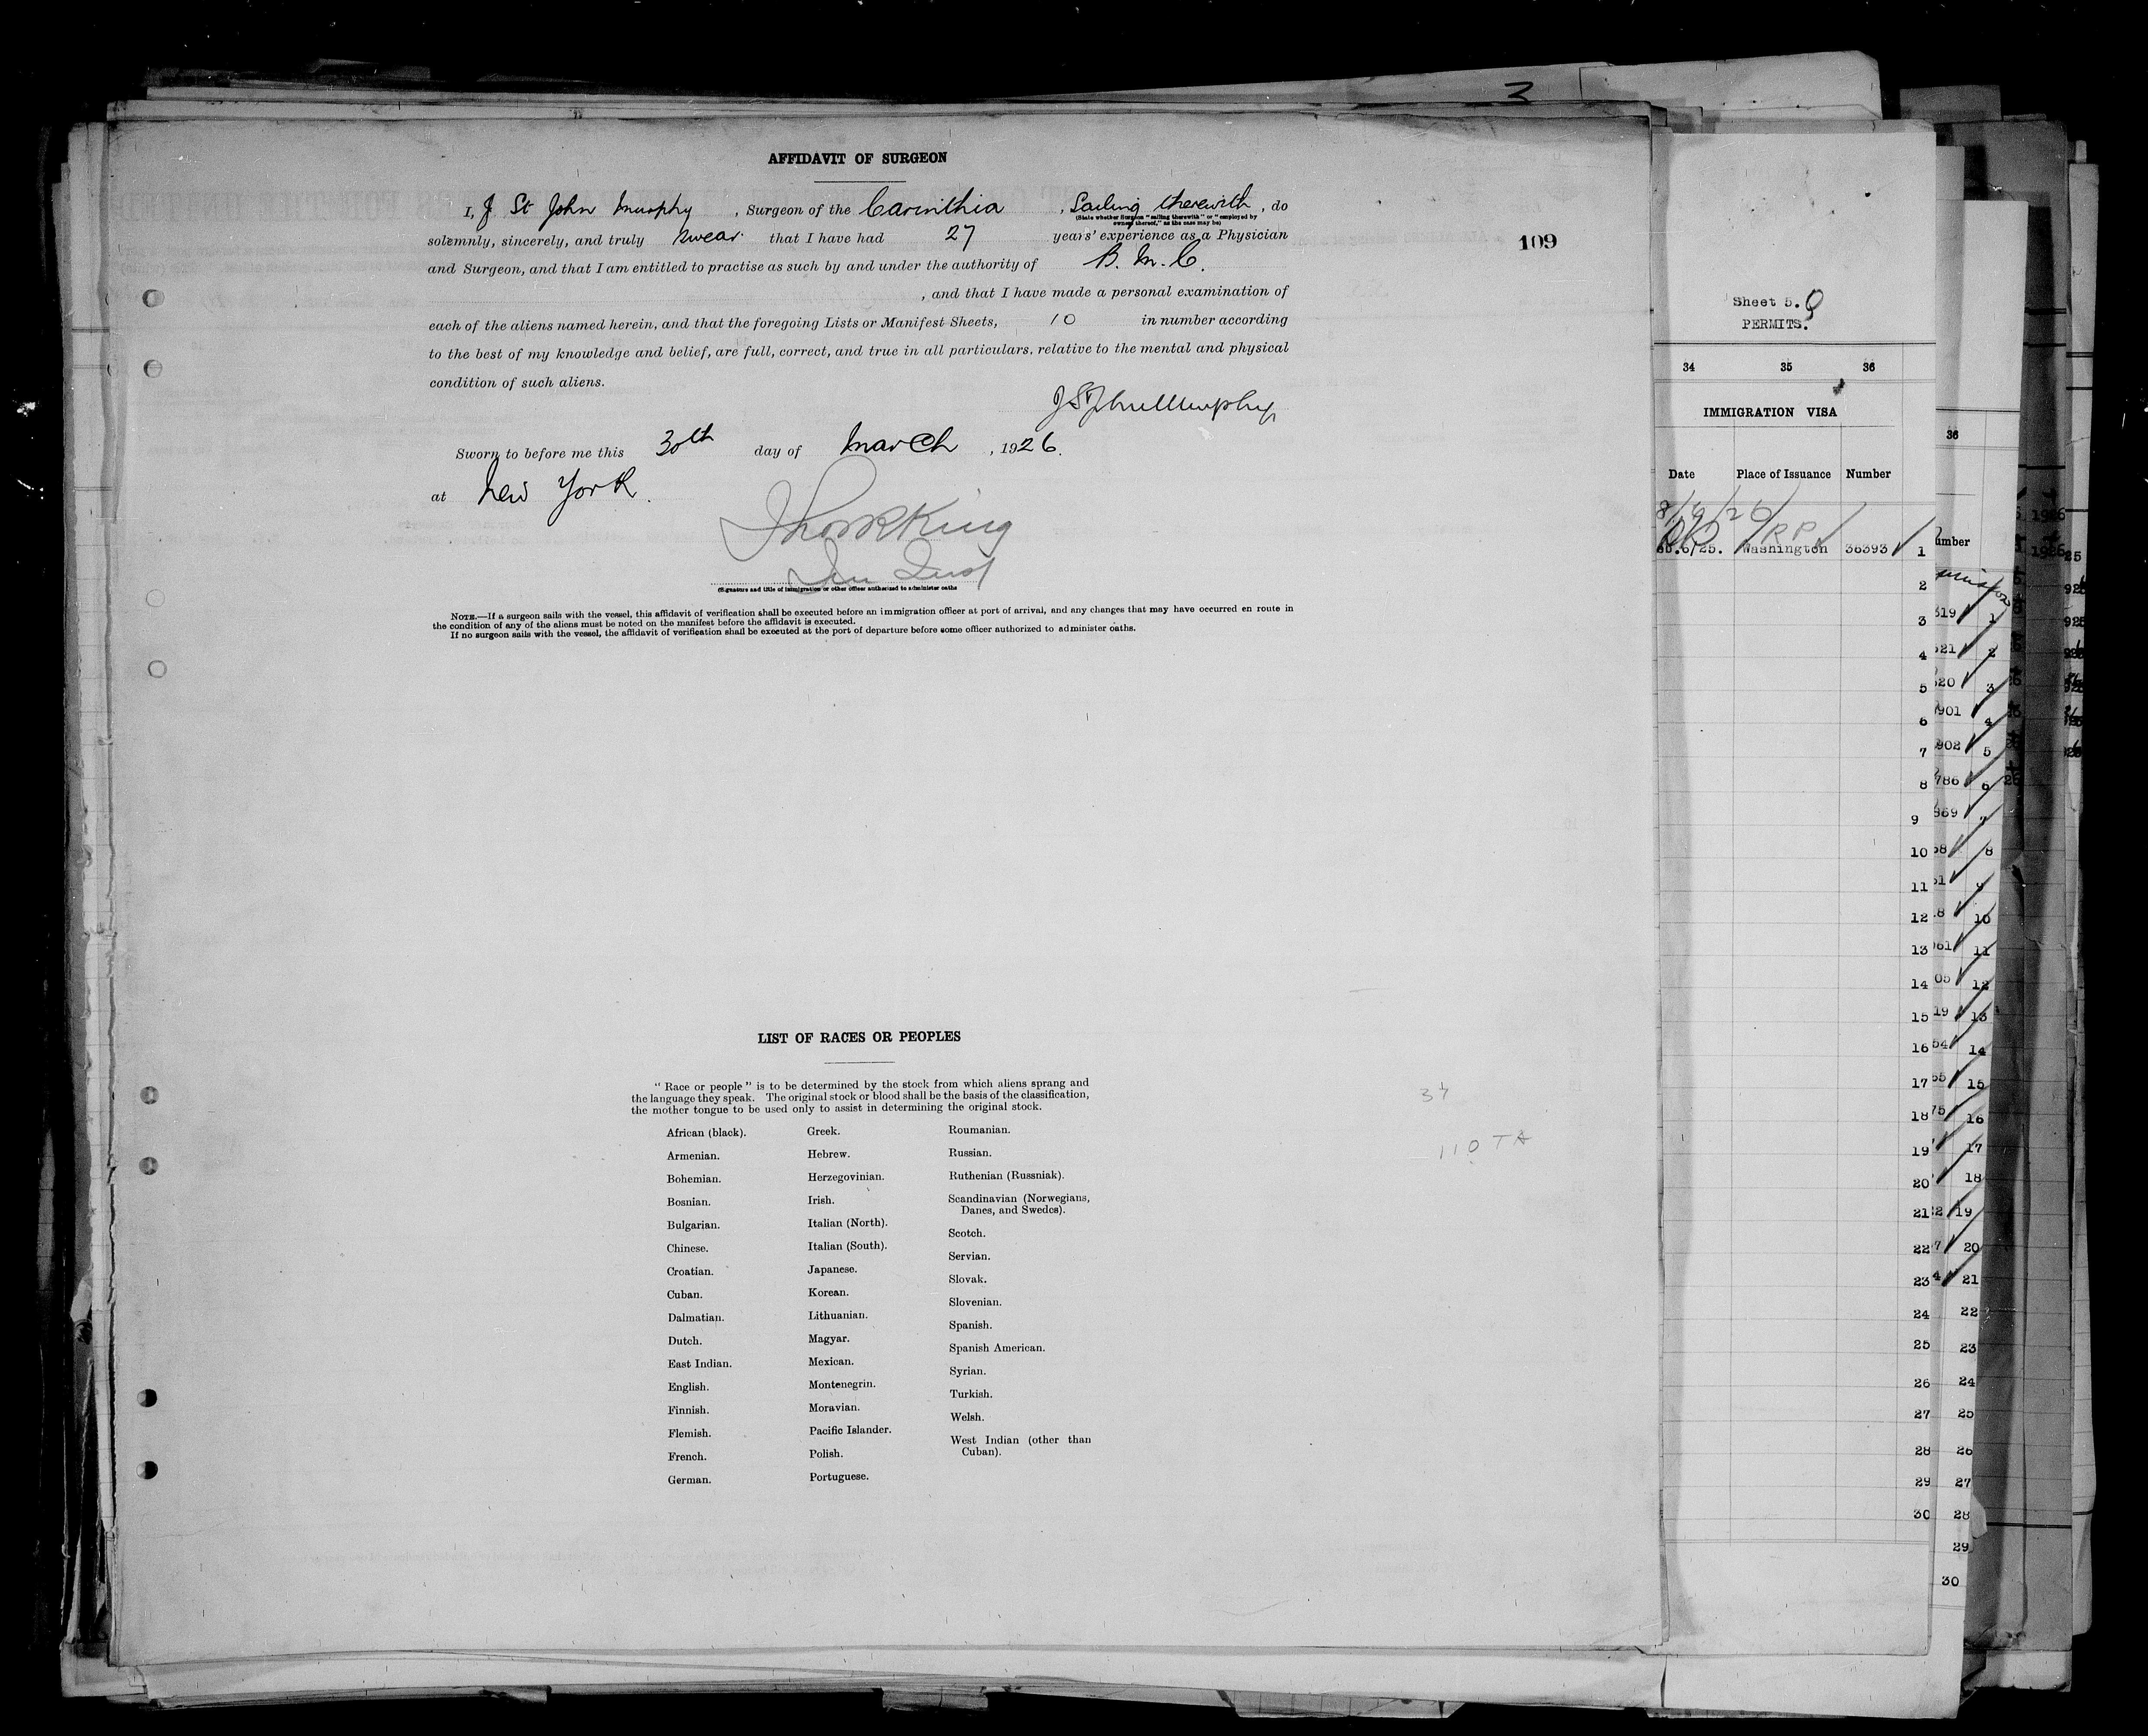 3
AFFIDAVIT OF SURGEON
I, J St John Murphy, Surgeon of the Carinthia, Sailing therewith, do
(State whether Surgeon "sailing therewith" or "employed by
owners thereof," as the case may be)
solemnly, sincerely, and truly swear that I have had 27 years' experience as a Physician
109
and Surgeon, and that I am entitled to practise as such by and under the authority of B. M. C.
, and that I have made a personal examination of
each of the aliens named herein, and that the foregoing Lists or Manifest Sheets, 10 in number according
to the best of my knowledge and belief, are full, correct, and true in all particulars, relative to the mental and physical
condition of such aliens.
J St John Murphy
Sworn to before me this 30th day of March, 1926.
at New York.
King
(Signature and title of immigration or other officer authorized to administer oaths
NOTE.—If a surgeon sails with the vessel, this affidavit of verification shall be executed before an immigration officer at port of arrival, and any changes that may have occurred en route in
the condition of any of the aliens must be noted on the manifest before the affidavit is executed.
If no surgeon sails with the vessel, the affidavit of verification shall be executed at the port of departure before some officer authorized to administer oaths.
LIST OF RACES OR PEOPLES
"Race or people" is to be determined by the stock from which aliens sprang and
the language they speak. The original stock or blood shall be the basis of the classification,
the mother tongue to be used only to assist in determining the original stock.
African (black).
Armenian.
Bohemian.
Bosnian.
Bulgarian.
Chinese.
Croatian.
Cuban.
Dalmatian.
Dutch.
East Indian.
English.
Finnish.
Flemish.
French.
German.
Greek.
Hebrew.
Herzegovinian.
Irish.
Italian (North).
Italian (South).
Japanese.
Korean.
Lithuanian.
Magyar.
Mexican.
Montenegrin.
Moravian.
Pacific Islander.
Polish.
Portuguese.
Roumanian.
Russian.
Ruthenian (Russniak).
Scandinavian (Norwegians,
Danes, and Swedes).
Scotch.
Servian.
Slovak.
Slovenian.
Spanish.
Spanish American.
Syrian.
Turkish.
Welsh.
West Indian (other than
Cuban).
34
110 TA
Sheet 5.
PERMITS.
34 35 36
IMMIGRATION VISA
Date Place of Issuance Number
8/9/26 RP
.6/25. Washington 36393 1
2
3
4
5
6
7
8
9
10
11
12
13
14
15
16
17
18
19
20
21
22
23
24
25
26
27
28
29
30
36
umber
319 1
521 2
520 3
901 4
902 5
786 6
869 7
58 8
51 9
8 10
061 11
05 12
19 13
54 14
55 15
75 16
17
18
2 19
7 20
4 21
22
23
24
25
26
27
28
29
30